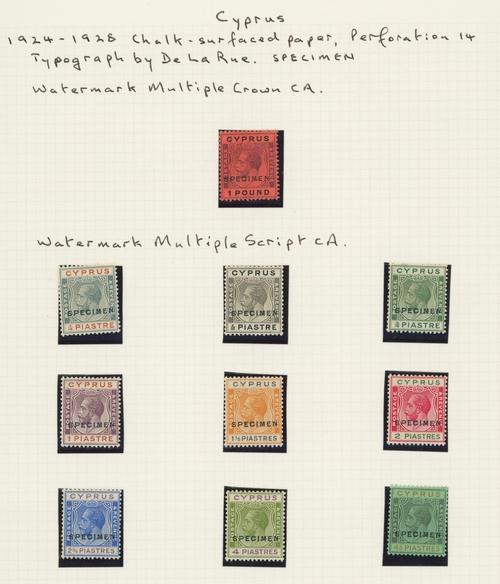 Cyprus
1924-1928 Chalk-surfaced paper, Perforation 14
Typograph by De La Rue. SPECIMEN
Watermark Multiple Crown CA.
CYPRUS
SPECIMEN
1 POUND
Watermark Multiple Script CA.
CYPRUS
SPECIMEN
¼ PIASTRE
CYPRUS
SPECIMEN
½ PIASTRE
CYPRUS
SPECIMEN
¾ PIASTRE
CYPRUS
SPECIMEN
1 PIASTRE
CYPRUS
SPECIMEN
1½ PIASTRES
CYPRUS
SPECIMEN
2 PIASTRES
CYPRUS
SPECIMEN
2½ PIASTRES
CYPRUS
SPECIMEN
4 PIASTRES
CYPRUS
SPECIMEN
4½ PIASTRES